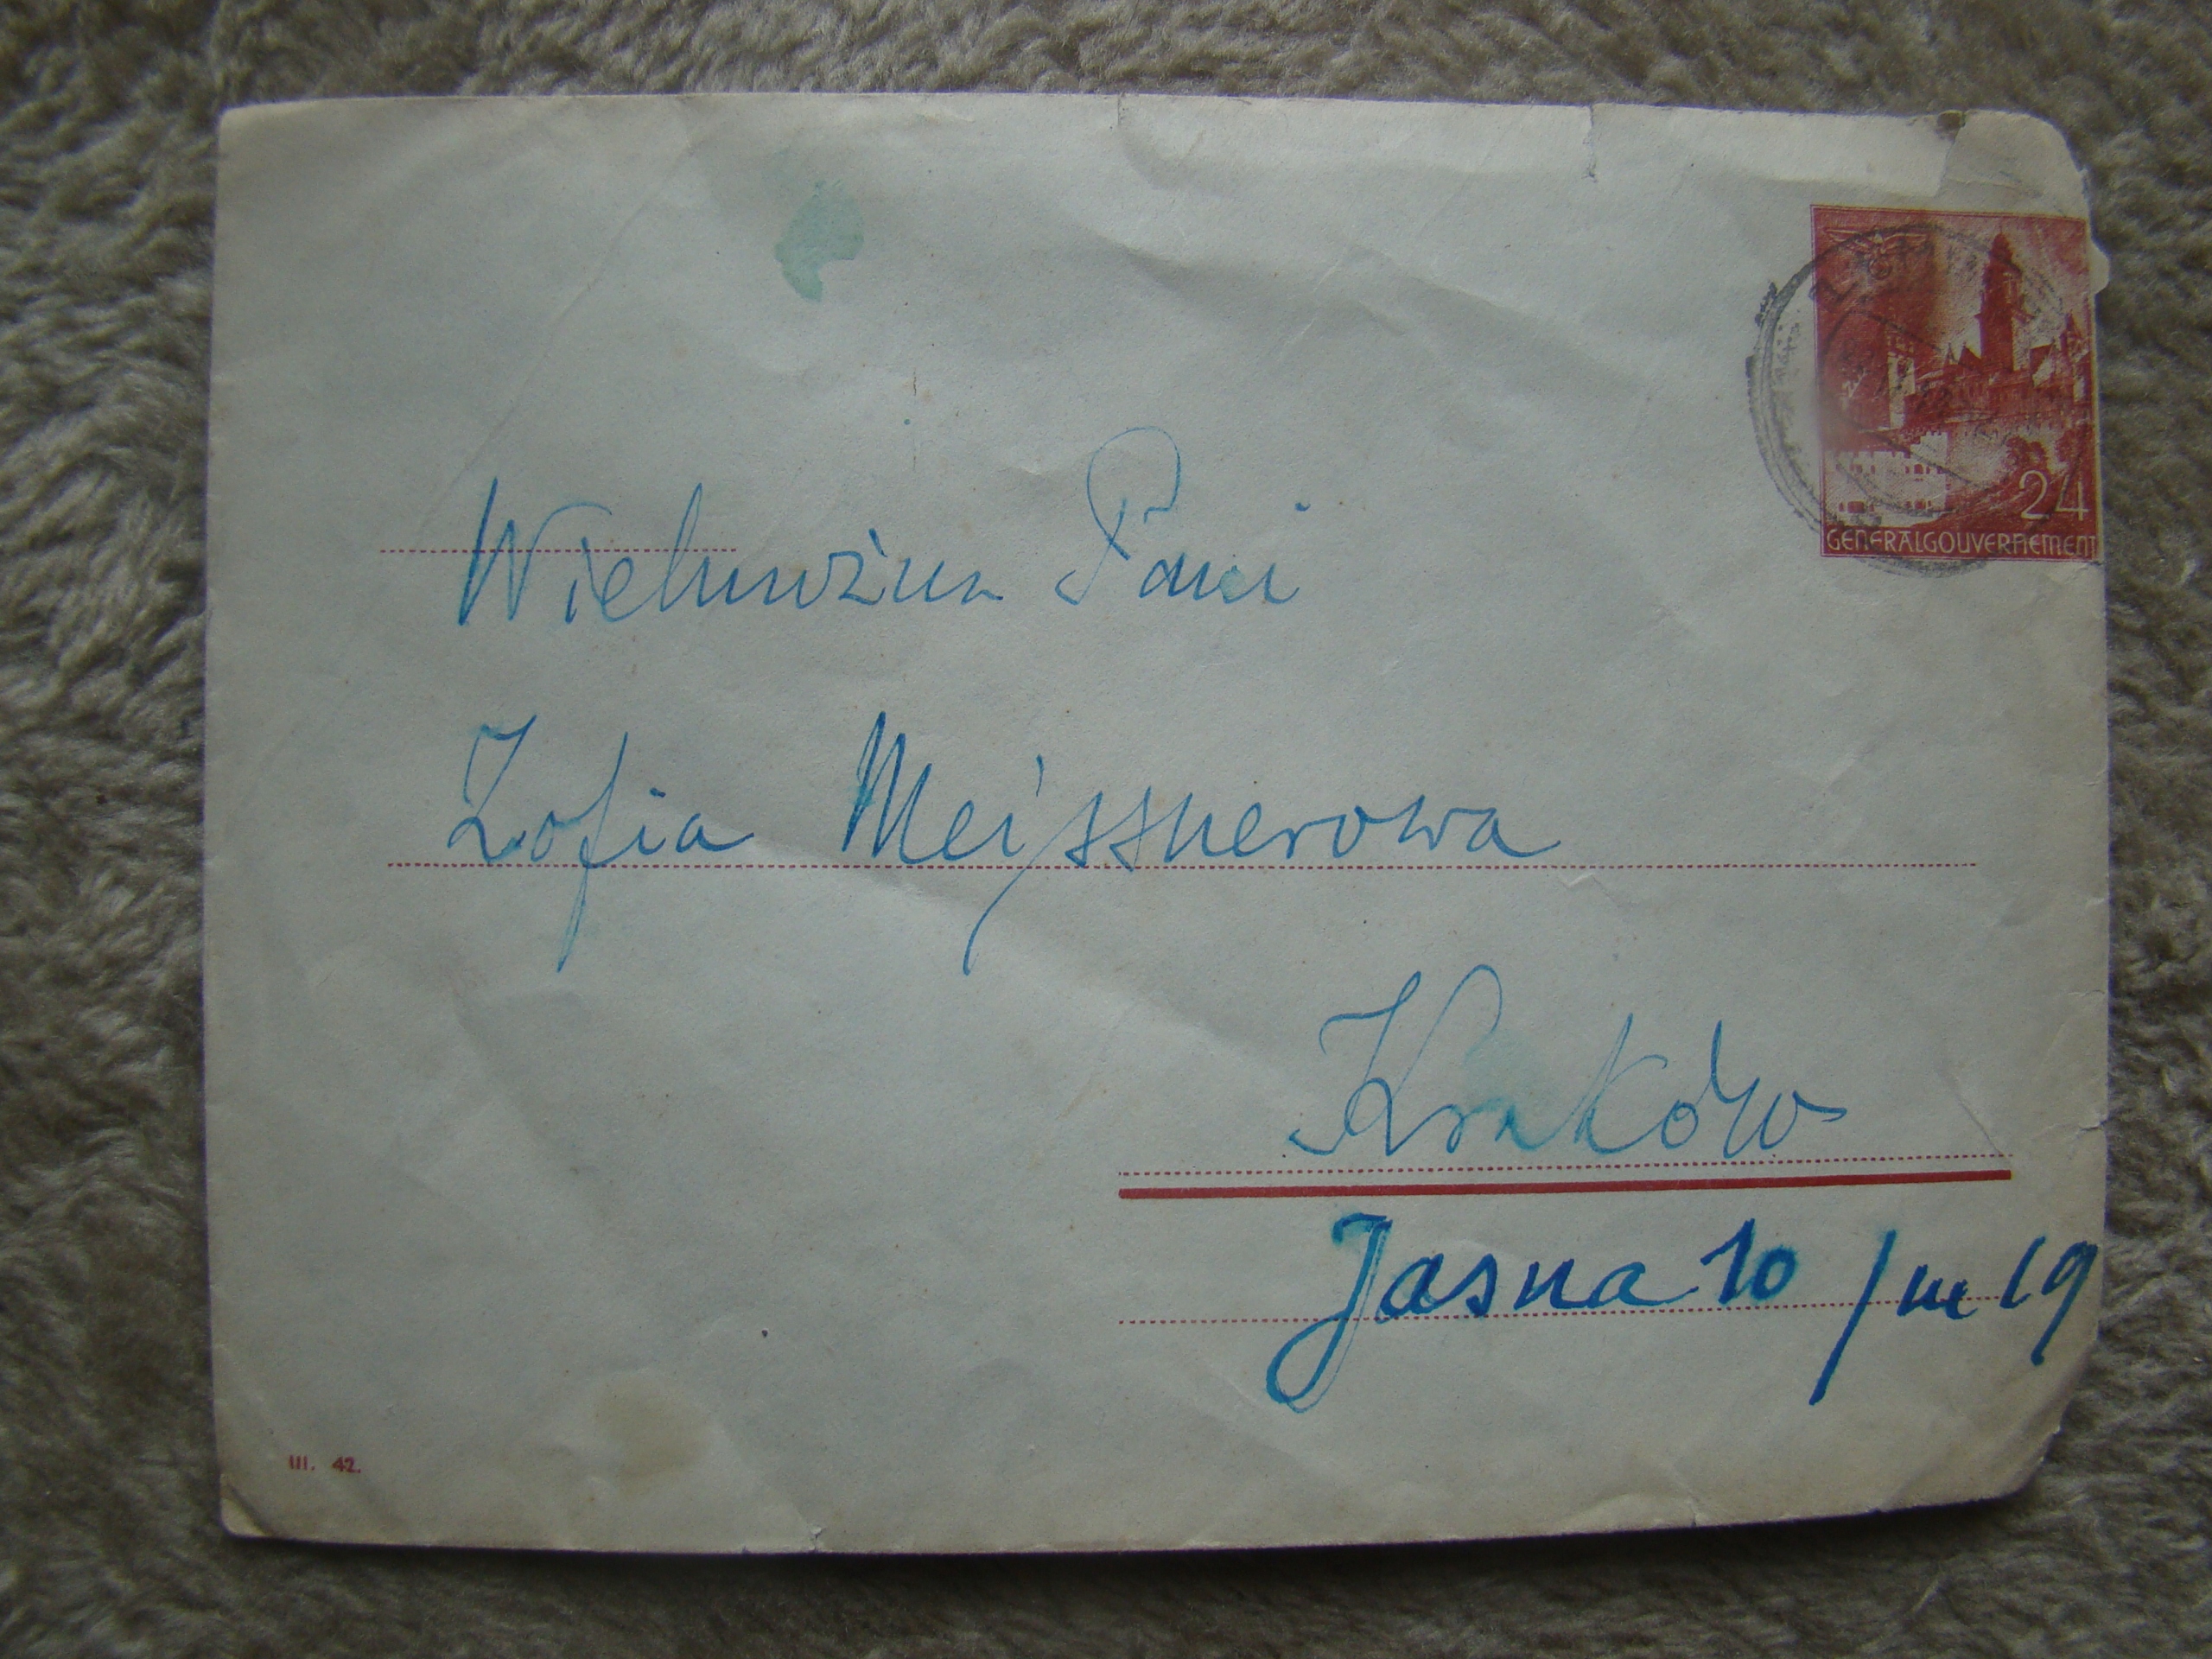 24
GENERALGOUVERNEMENT
Wielmożna Pani
Zofia Mejssnerowa
Kraków
Jasna 10 / m 19
III. 42.